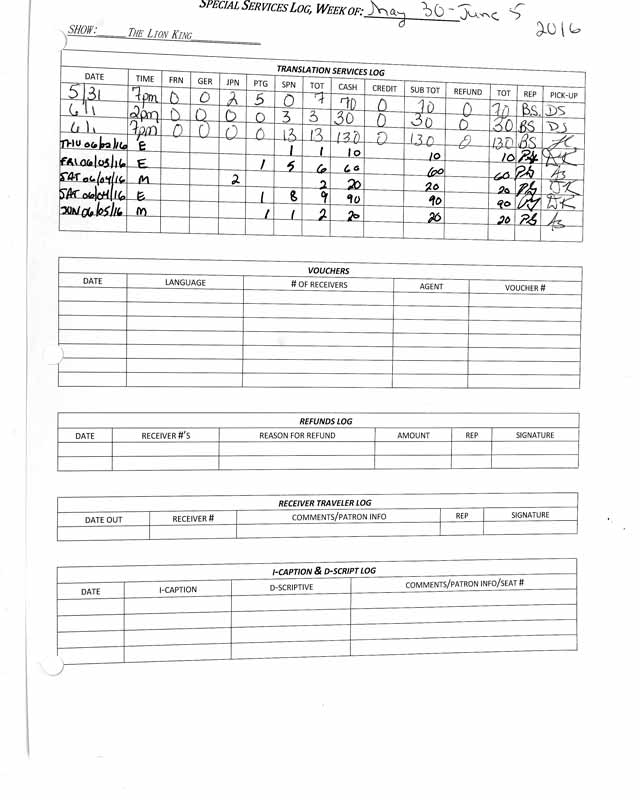 SPECIAL SERVICES LOG, WEEK OF: May 30 - June 5
2016
SHOW: THE LION KING
TRANSLATION SERVICES LOG
DATE TIME FRN GER JPN PTG SPN TOT CASH CREDIT SUB TOT REFUND TOT REP PICK-UP
5/31 7pm 0 0 2 5 0 7 70 0 70 0 70 BS. DS
6/1 2pm 0 0 0 0 3 3 30 0 30 0 30 BS DS
6/1 7pm 0 0 0 0 13 13 130 0 130 0 130 BS
THU 06/02/16 E 1 1 10 10 10
FRI 06/03/16 E 1 5 6 60 60 60
SAT 06/04/16 M 2 2 20 20 20
SAT 06/04/16 E 1 8 9 90 90 90
SUN 06/05/16 M 1 1 2 20 20 20
VOUCHERS
DATE LANGUAGE # OF RECEIVERS AGENT VOUCHER #
REFUNDS LOG
DATE RECEIVER #'S REASON FOR REFUND AMOUNT REP SIGNATURE
RECEIVER TRAVELER LOG
DATE OUT RECEIVER # COMMENTS/PATRON INFO REP SIGNATURE
I-CAPTION & D-SCRIPT LOG
DATE I-CAPTION D-SCRIPTIVE COMMENTS/PATRON INFO/SEAT #